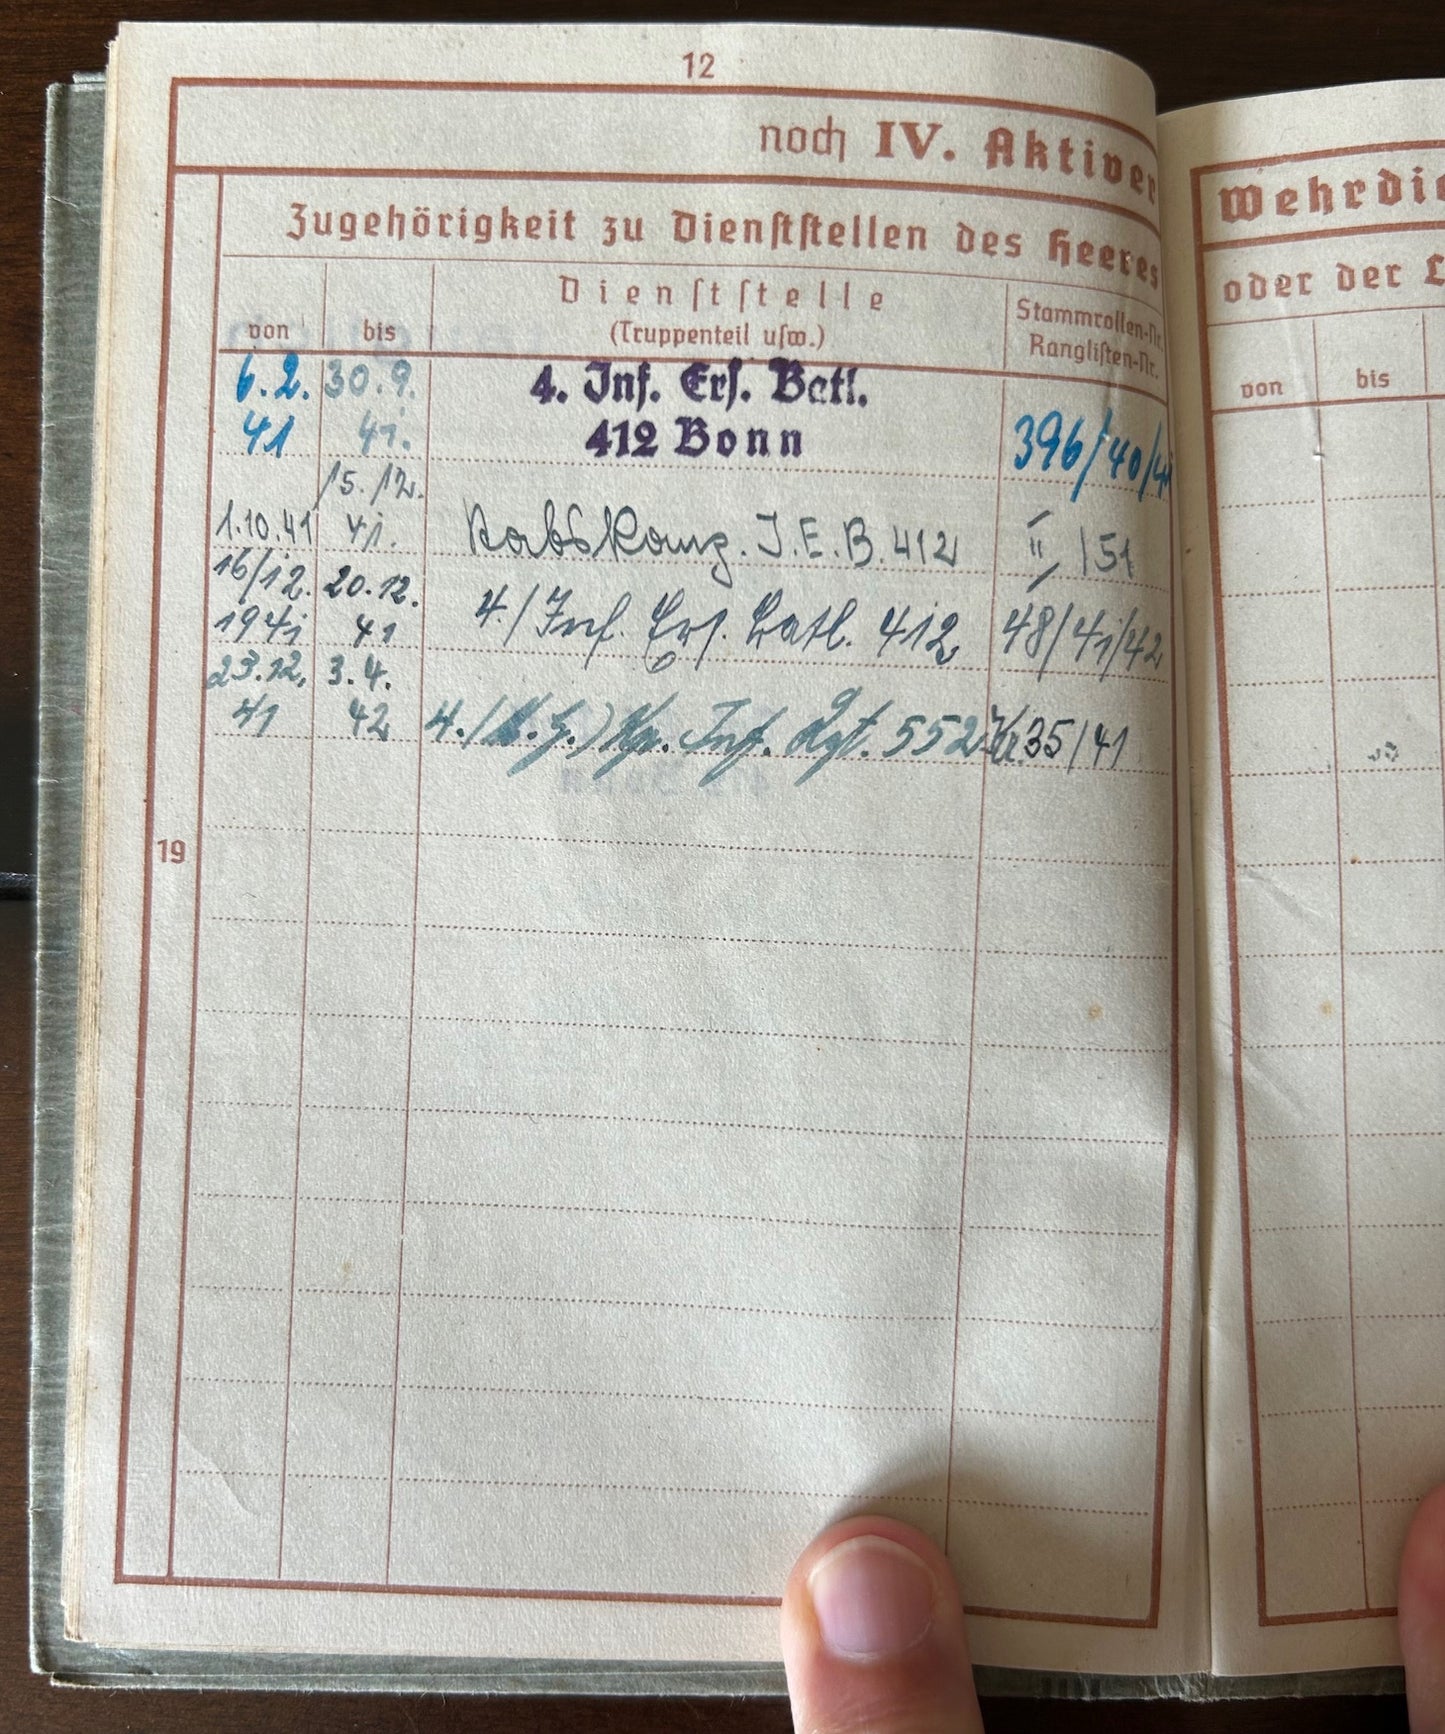 12
noch IV. Aktiver
Zugehörigkeit zu Dienststellen des Heeres
von
bis
Dienststelle
(Truppenteil usw.)
Stammrollen-Nr.
Ranglisten-Nr.
6.2. 30.9. 4. Inf. Ers. Batl.
41 41. 412 Bonn 396/40/41
15./12.
1.10.41 41. I.E.B. 412 II /51
16/12. 20.12. 4./Inf. Ers. Batl. 412 48/41/42
1941 41
23.12. 3.4.
41 42 4./(M.G.) Kp. Inf. Rgt. 552 Nr. 35/41
19
Wehrdie
oder der L
von
bis